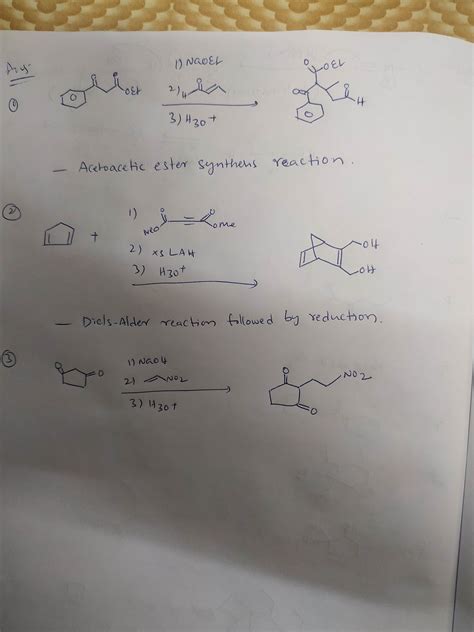 Ans:
①
O
O
OEt
1) NaOEt
2) H O
3) H3O+
O OEt
O
O
H
— Acetoacetic ester synthesis reaction.
②
+
1) MeO O O OMe
2) xs LAH
3) H3O+
OH
OH
— Diels-Alder reaction followed by reduction.
③
O
O
1) NaOH
2) NO2
3) H3O+
O
NO2
O